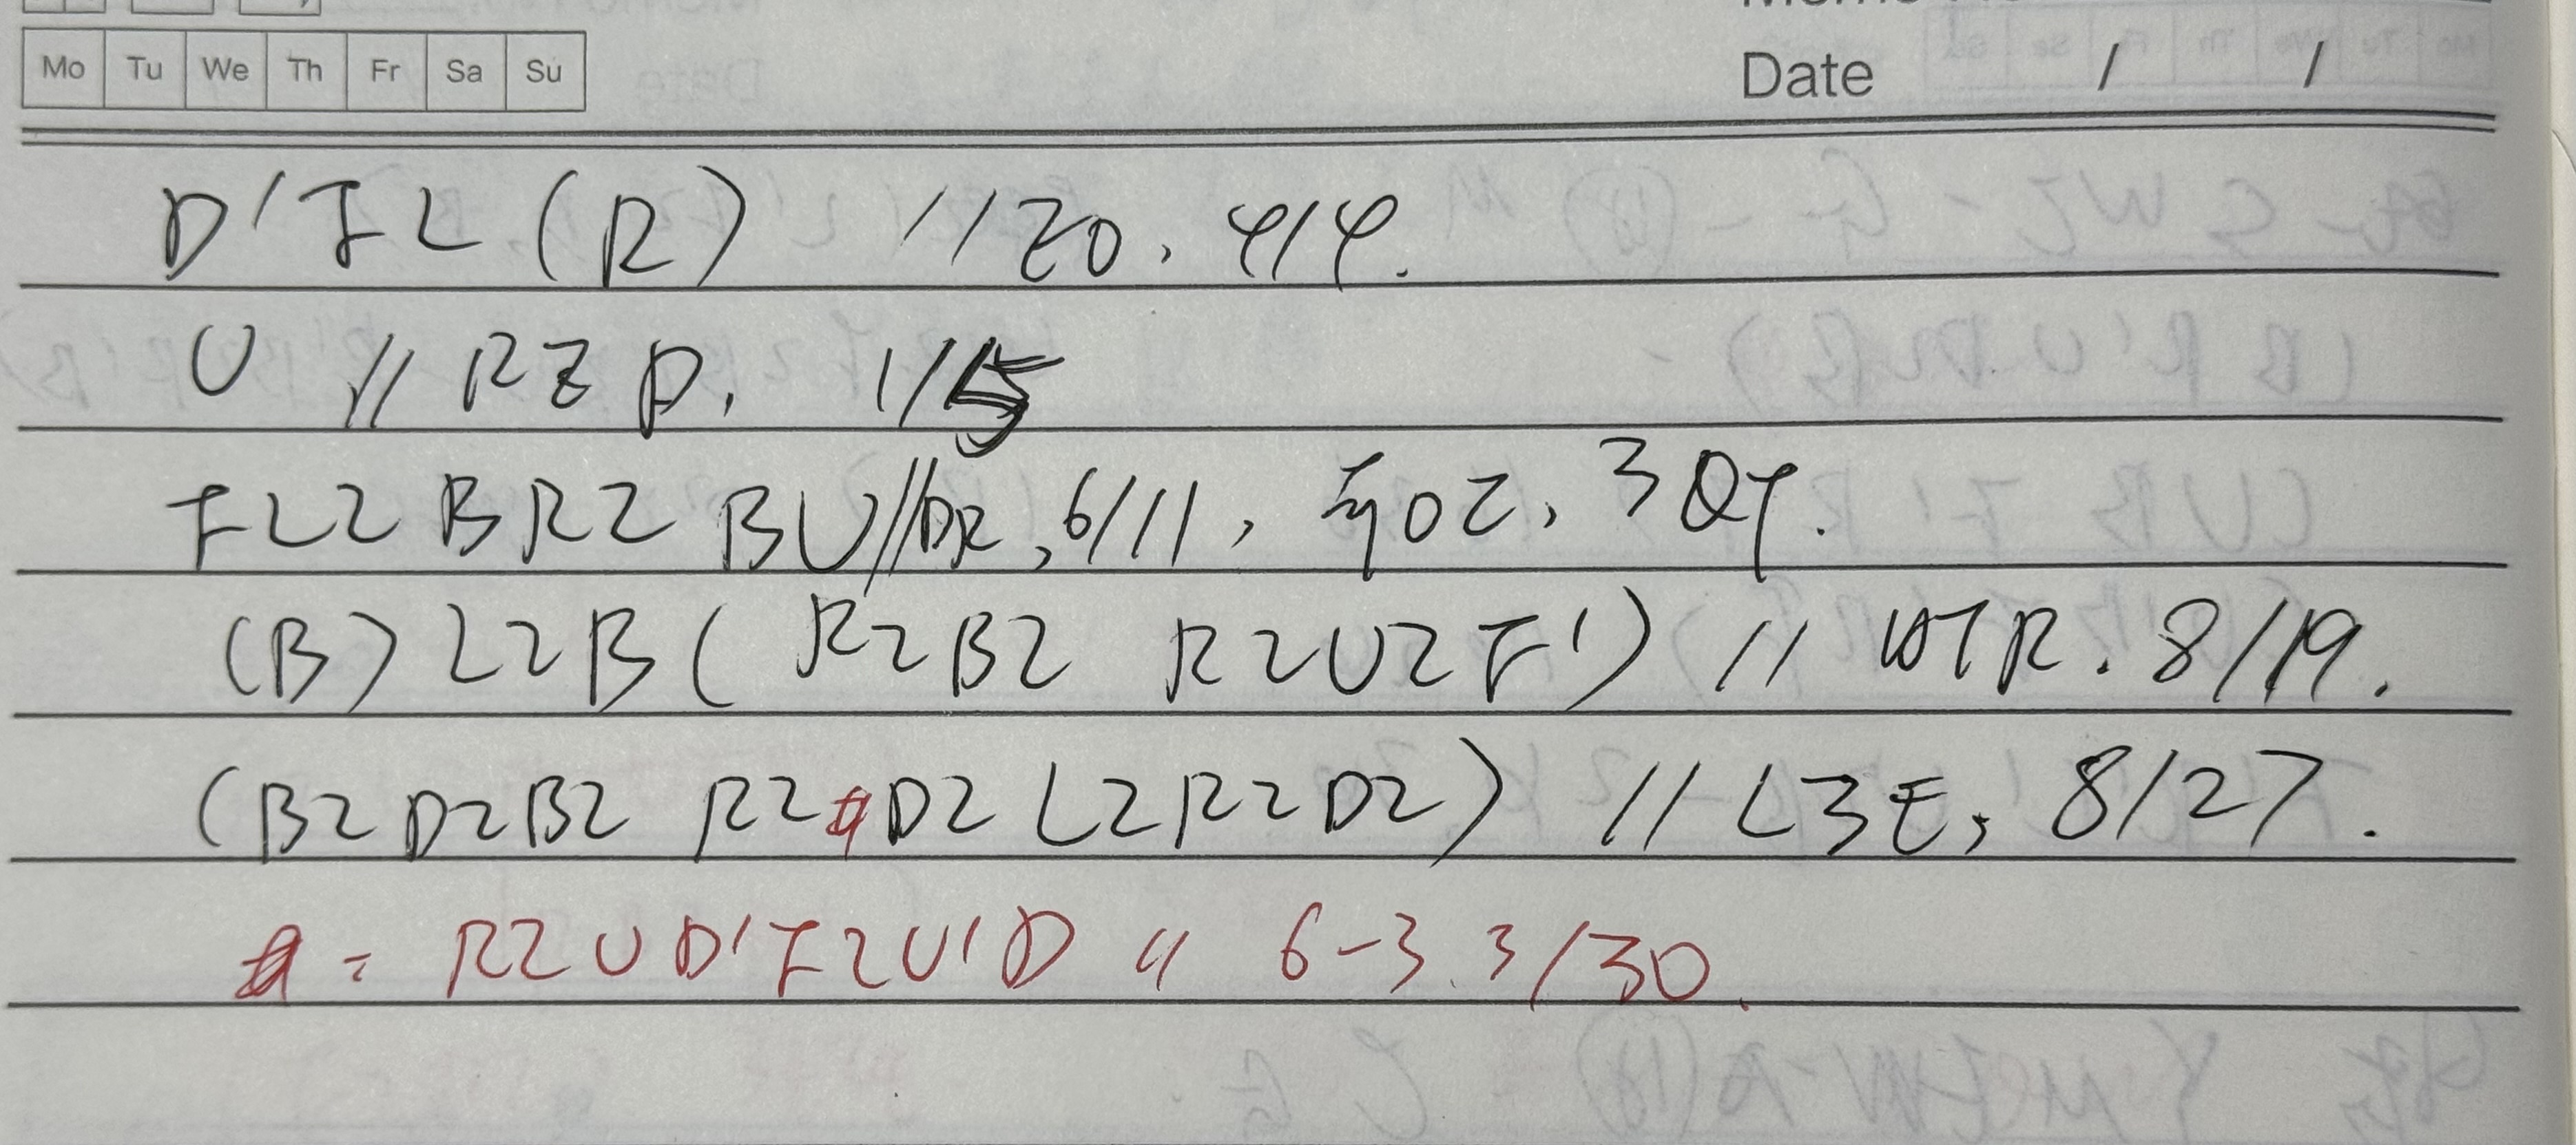 Mo Tu We Th Fr Sa Su
Date / /
D'FL (R) // EO, 4/4.
U // RZP, 1/5
FL2 B R2 BU // DR, 6/11, 为0C, 3QT.
(B) L2B (R2B2 R2U2F') // HTR. 8/19.
(B2D2B2 R2 D2 L2R2D2) // L3E, 8/27.
= R2 U D' F2 U' D // 6-3 3/30.